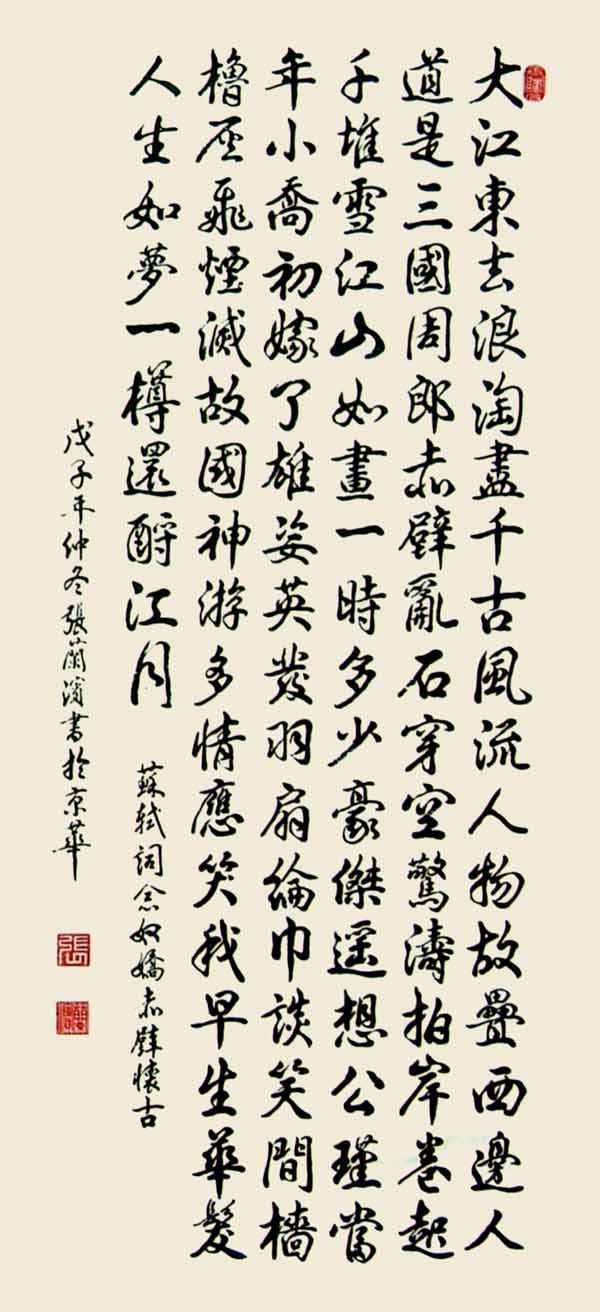 大江東去浪淘盡千古風流人物故疊西邊人
道是三國周郎赤壁亂石穿空驚濤拍岸卷起
千堆雪江山如畫一時多少豪傑遥想公瑾當
年小喬初嫁了雄姿英發羽扇綸巾談笑間檣
櫓灰飛煙滅故國神游多情應笑我早生華髮
人生如夢一樽還酹江月
蘇軾詞念奴嬌赤壁懷古
戊子年仲冬張蘭濱書於京華
張